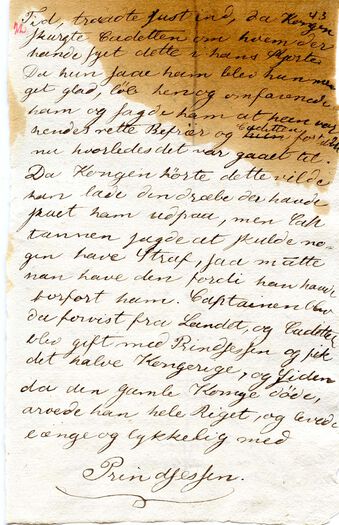 43
Tid, traadte just ind, da Kongen
spurgte Cadetten om hvem der
havde syet dette i hans Skjorte
Da hun saae ham blev hun meget
get glad, löb hen og omfavnede
ham og sagde ham at han var
hendes rette Befrier og Cadetten fortalte
nu hvorledes det var gaaet til.
Da Kongen hörte dette vilde
han lade den dræbe der havde
sat ham ud paa, men Cap
tainen sagde at skulde no-
gen have Straf, saa maatte
han have den fordi han havde
bortfört ham. Captainen blev
da forvist fra Landet, og Cadetten
blev gift med Prindsessen og fik
det halve Kongerige, og siden
da den gamle Konge döde,
arvede han hele Riget, og levede
længe og lykkelig med
Prindsessen.